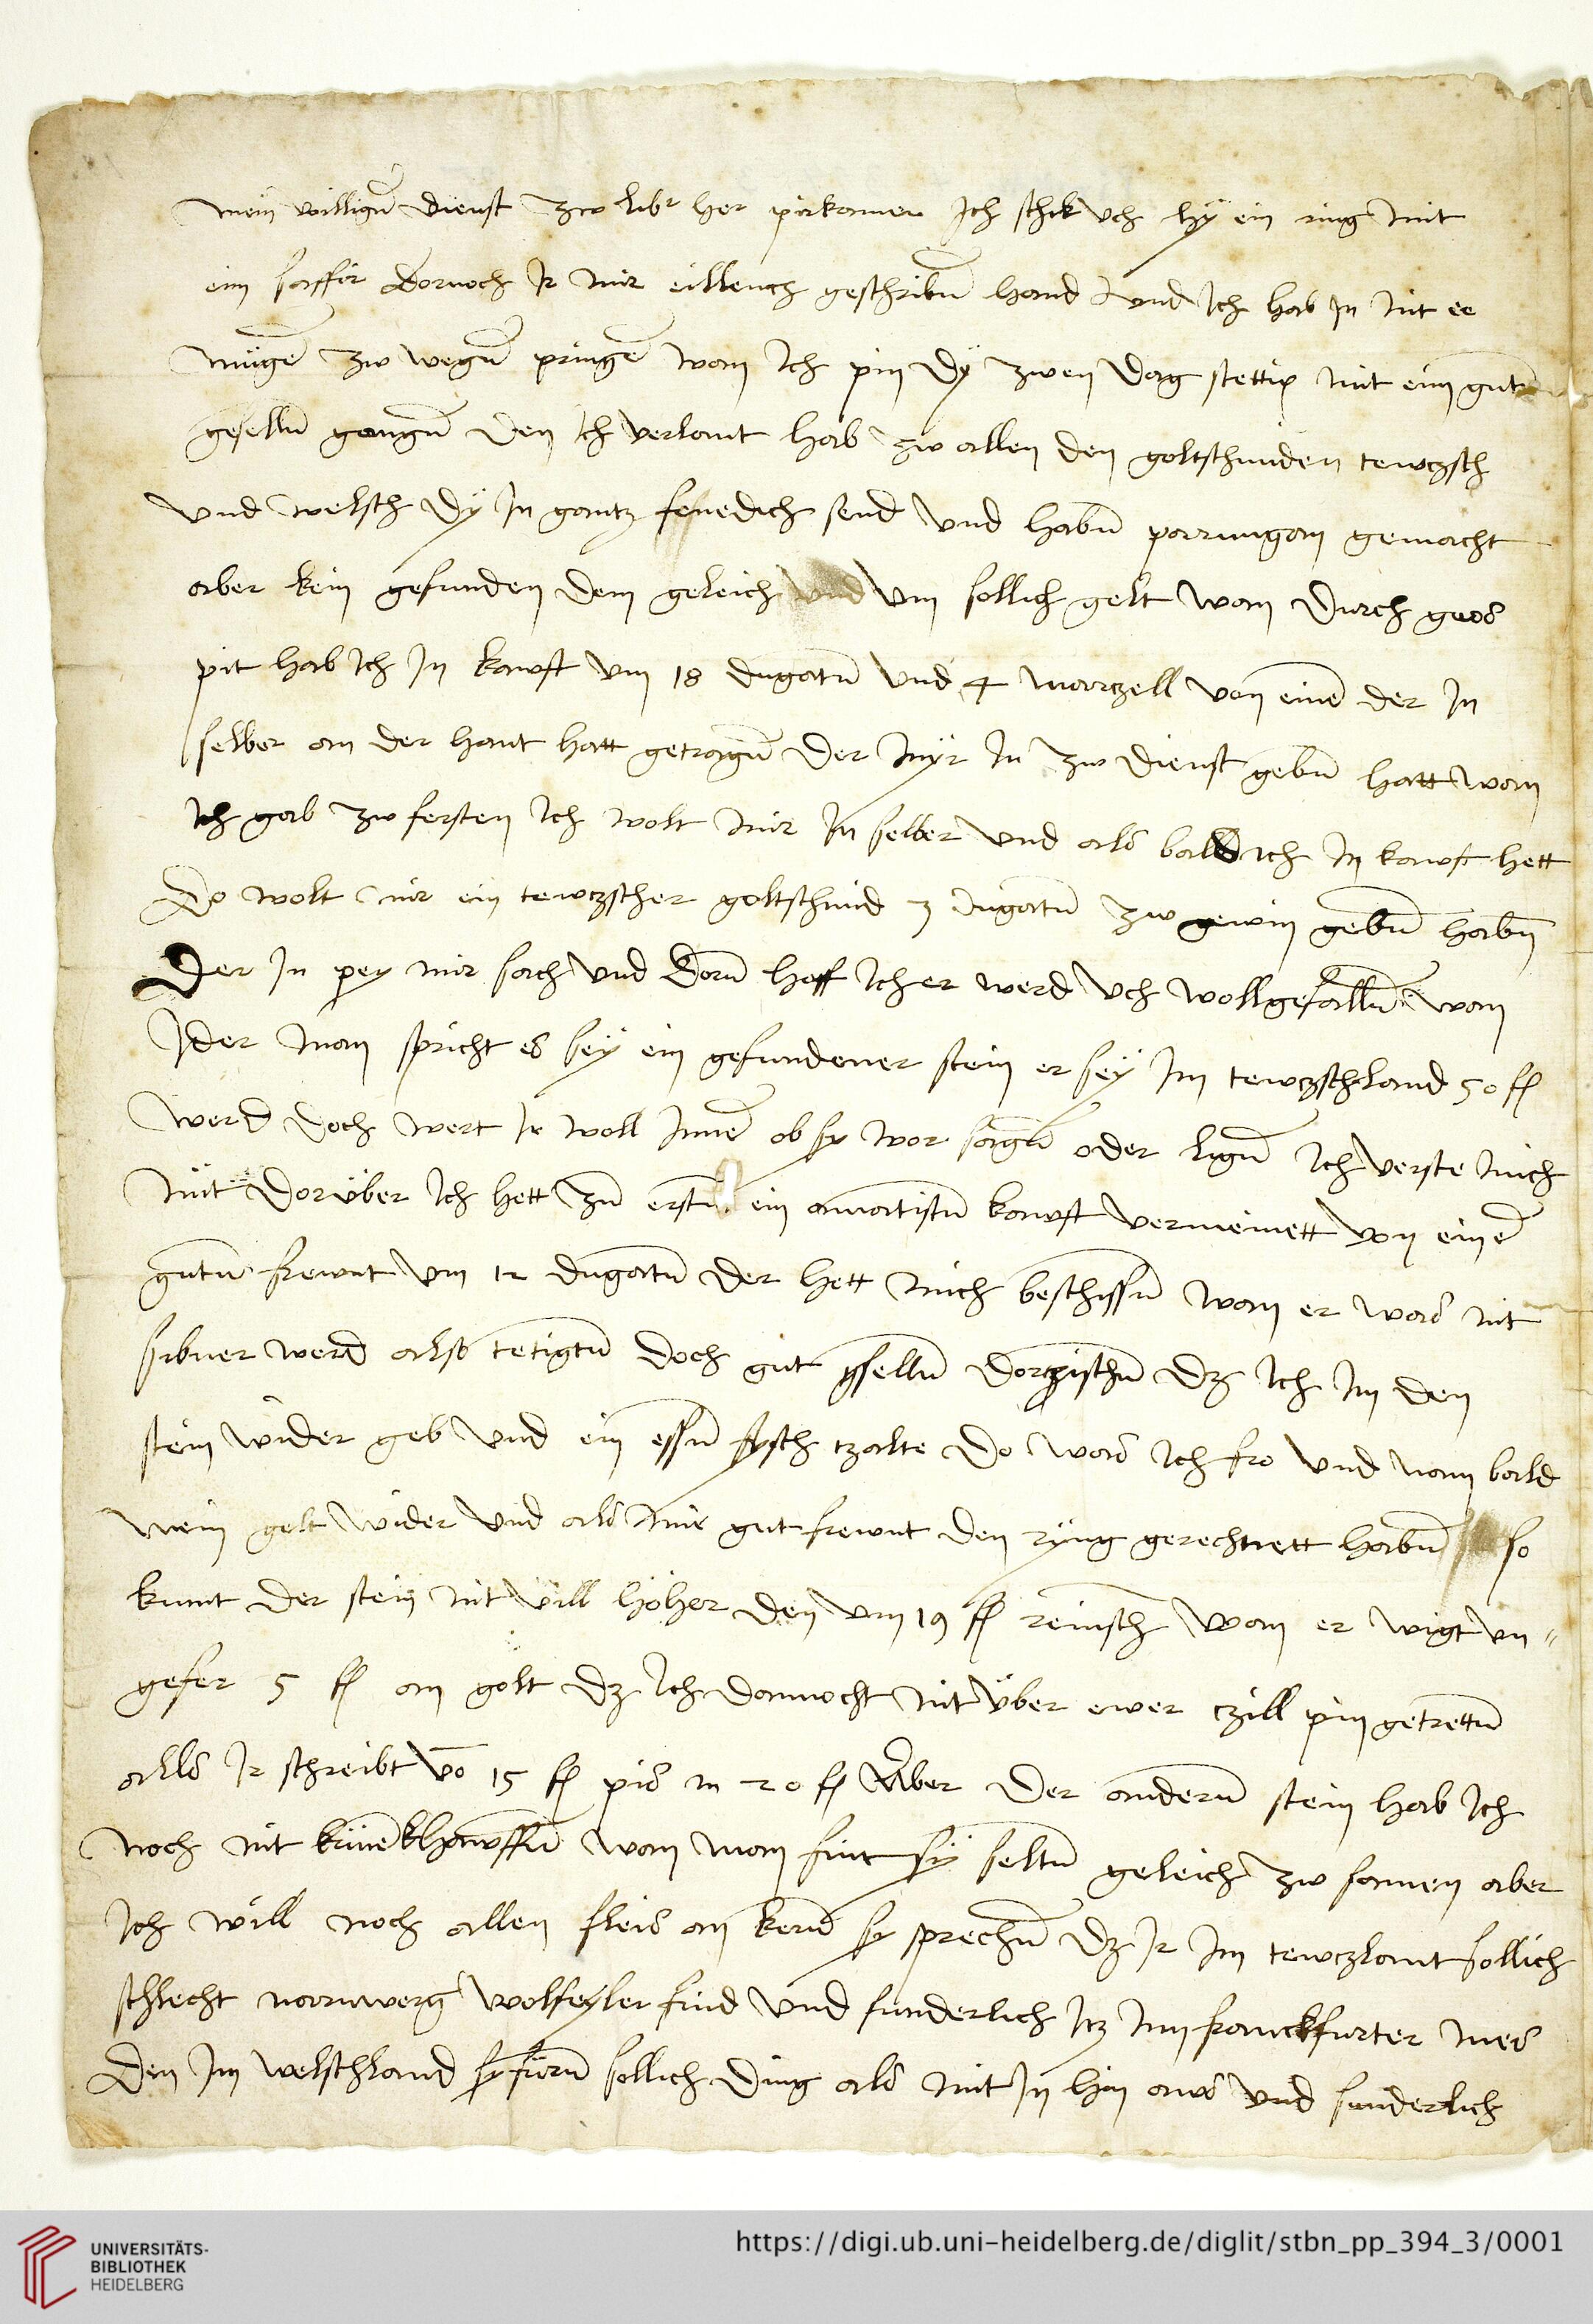 mein willigen dienst zw lib^r her pirkamer Ich schik vch hÿ ein ring mit
eim saffir dornoch Ir mir eillench geschriben hand vnd Ich hab In nit ee
mügen zw wegen pringen wan Ich pin dÿ zwen dag stettix mit eim guten
gesellen gangen den Ich verlant hab zw allen den goltschmiden tewczsch
vnd welsch dÿ In gantz fenedich send vnd haben parrungan gemacht
aber kein gefunden dem geleich vm sollich gelt wan durch gros
pit hab Ich In kawft vm 18 dugaten vnd 4 marczell van einem der In
selber an der hant hatt getragen der myr In zw dienst geben hatt wan
Ich gab zw fersten Ich wolt mir In selber vnd als bald Ich In kawft hett
Do wolt mir ein tewczscher goltschmid 3 dugaten zw gewin geben haben
Der In peÿ mir sach vnd dorum hoff Ich er werd vch woll gefallen wan
Ider man spricht es seÿ ein gefundener stein er seÿ Im tewczschland 50 fl
werd doch wert Ir woll Innen ob sy wor sagen oder ligen Ich verste mich
nüt dorüber Ich hett zum ersten ein amatisten kawft vermeinett von einem
guten frewnt vm 12 dugaten der hett mich beschissen wan er was nit
sibner werd also tetigten doch gut gsellen dortzwischen dz Ich Im den
stein wider geb vnd ein essen fysch tzalte Do was Ich fro vnd nam bald
mein gelt wider vnd als mir gut frewnt den ryng gerechnett haben so
kumt der stein nit vill höher den vm 19 fl reinsch wan er wigt vn"
gefer 5 fl an golt dz Ich dannocht nit über ewer czill pin getretten
als Ir schreibt vo 15 fl pis in 20 fl Aber der anderen stein hab Ich
noch nit künen khawffen wan man fint sÿ selten geleich zw samen aber
Ich will noch allen fleis an keren sy sprechen dz Ir Im tewczlant sollich
schlecht narnwerg wolfeÿler find vnd sunderlich Itz Inn franckfurter mes
den Im welschland sy füren sollich ding als mit In hin aws vnd sunderlich
UNIVERSITÄTS-
BIBLIOTHEK
HEIDELBERG
https://digi.ub.uni-heidelberg.de/diglit/stbn_pp_394_3/0001